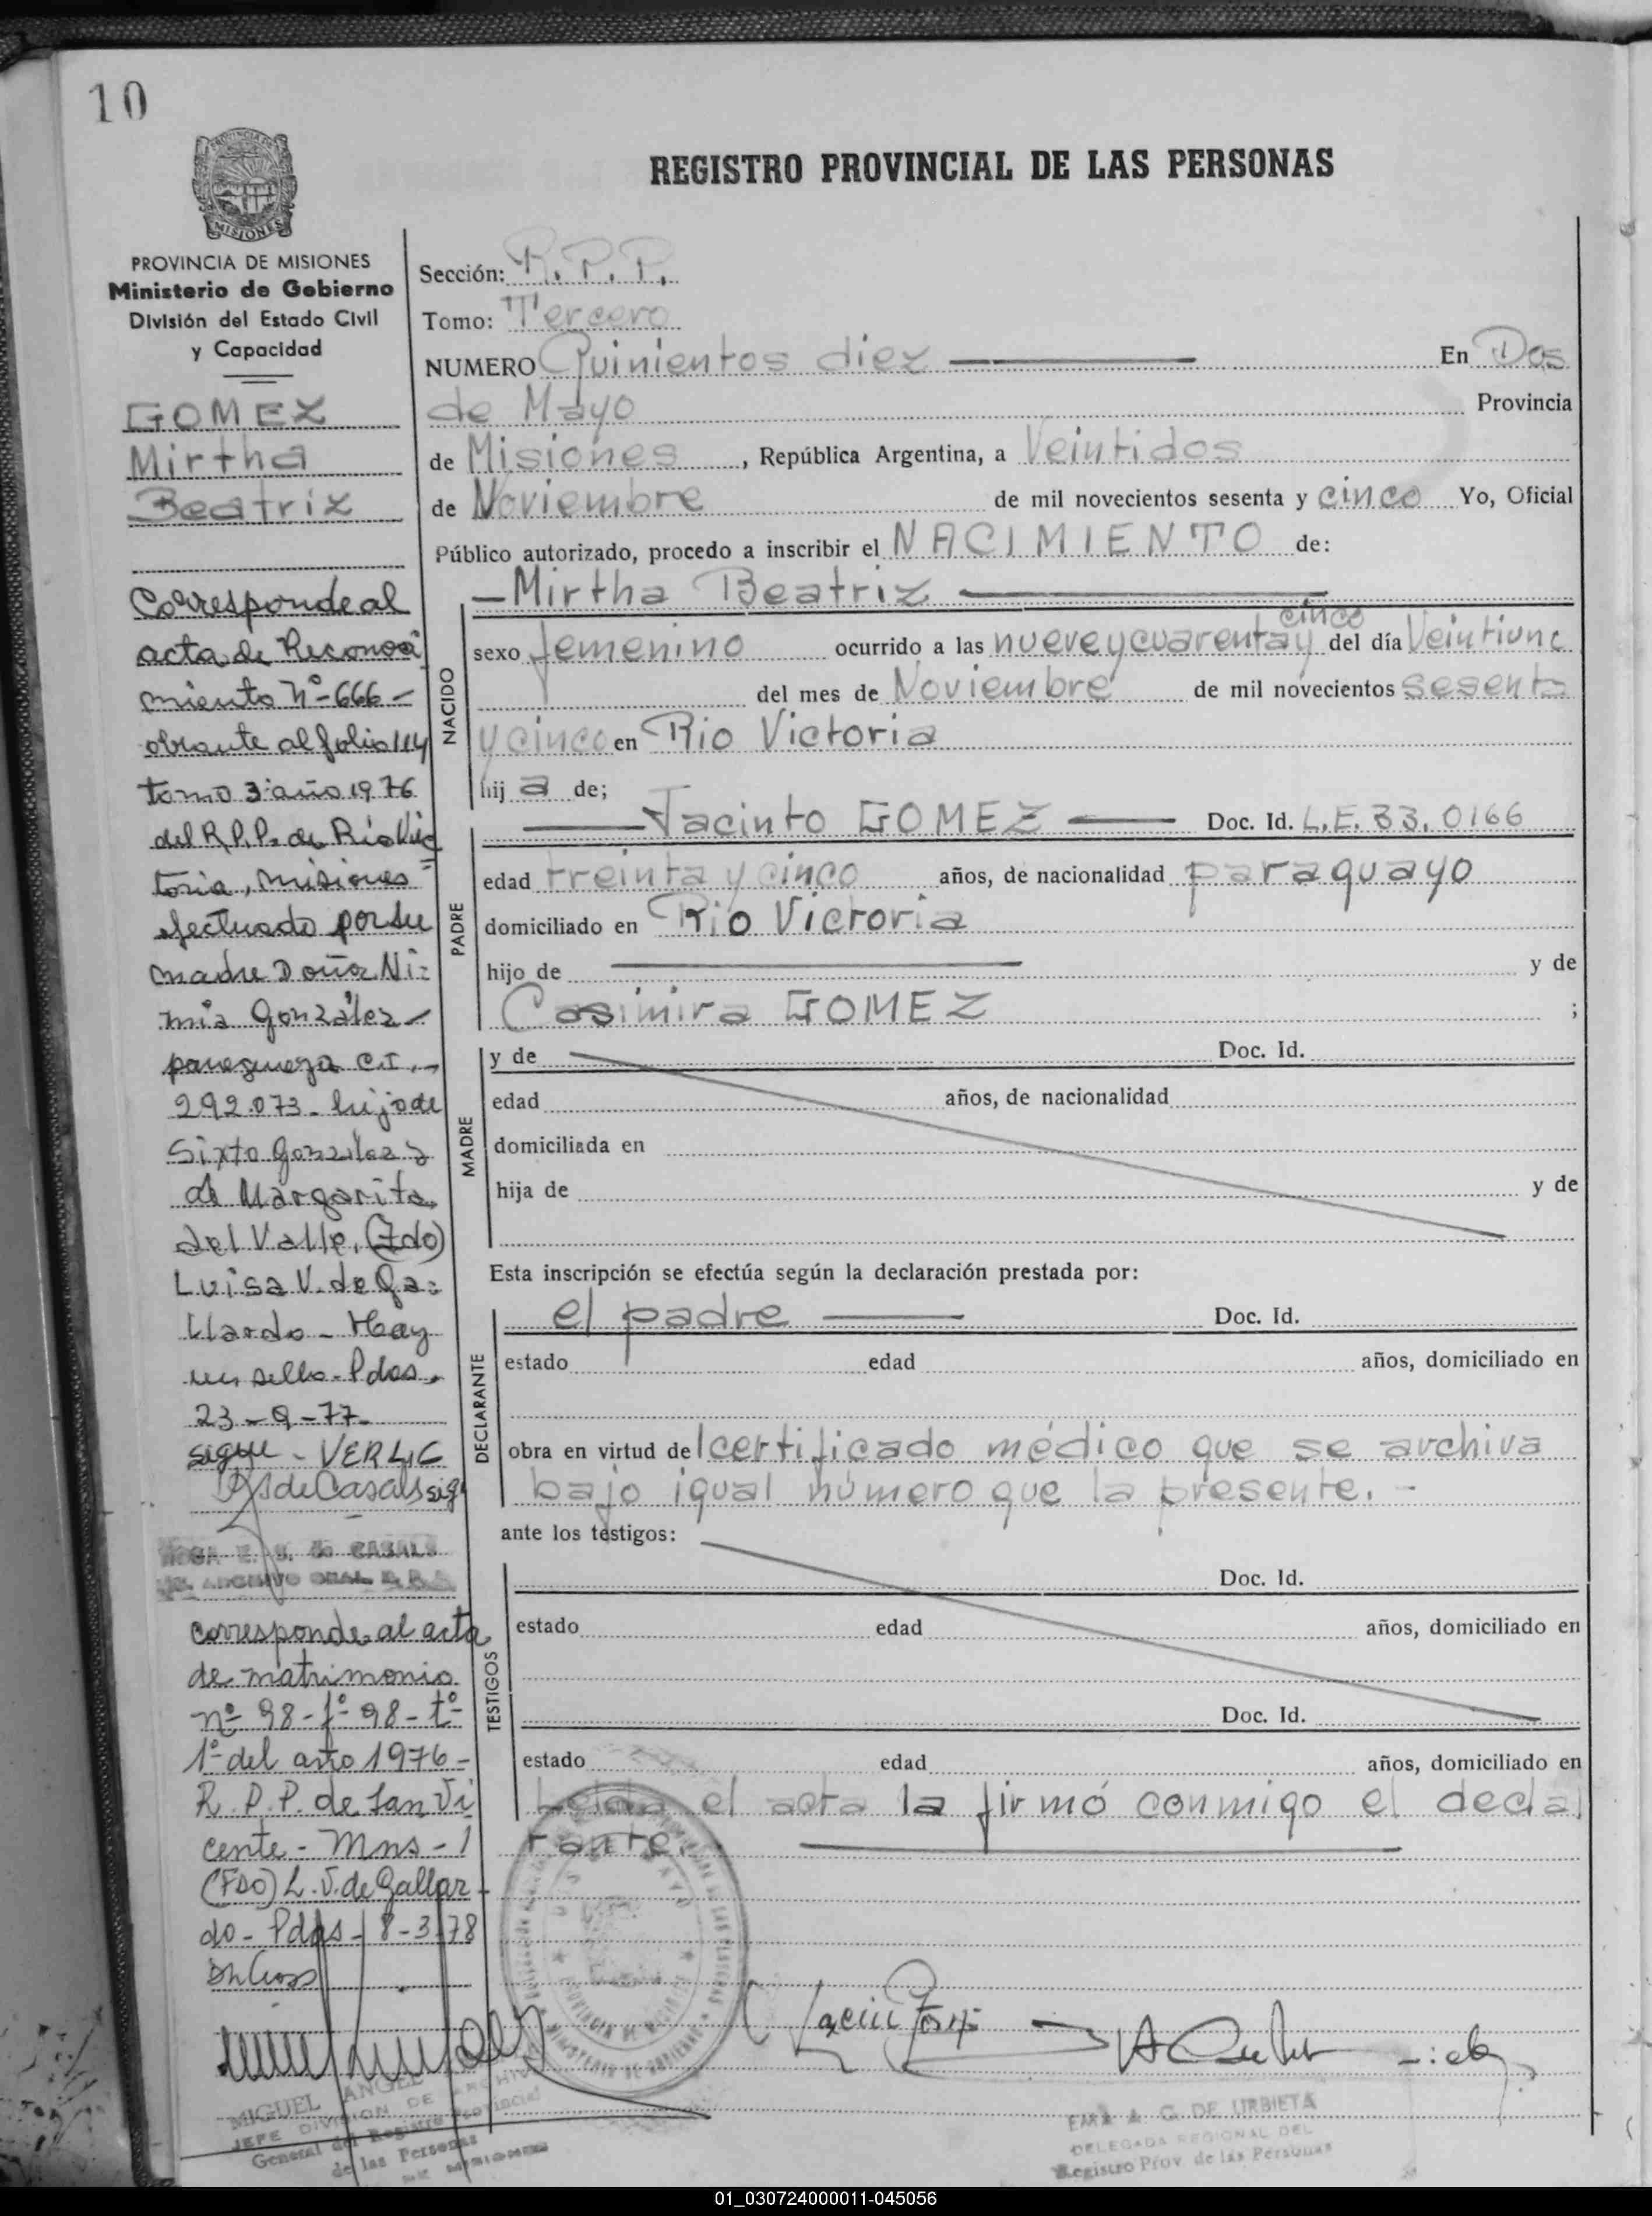 10
PROVINCIA DE MISIONES
Ministerio de Gobierno
División del Estado Civil
y Capacidad
GOMEZ
Mirtha
Beatriz
Corresponde al
acta de Reconoci
miento Nº 666 -
obrante al folio 114
tomo 3º año 1976
del R.P.P. de Rio Vic
toria, Misiones
efectuado por su
madre Doña Ni-
mia González -
paraguaya C.I.
292.073 - hija de
Sixto González y
de Margarita
del Valle, (Fdo)
Luisa V. de Ga-
llardo - Hay
un sello - Pdas,
23-9-77-
sigue - VERLIC
de Casals sigue
E. S. de CASALS
ARCHIVO GRAL. R.P.P.
Corresponde al acta
de matrimonio
nº 98 - fº 98 - tº
1º del año 1976 -
R.P.P. de San Vi
cente - Mns -
(FDO) L. V. de Gallar
do - Pdas - 8-3-78
MIGUEL ANGEL
JEFE DIVISION DE ARCHIVO
General del Registro Provincial
de las Personas
DE MISIONES
REGISTRO PROVINCIAL DE LAS PERSONAS
Sección: R.P.P.
Tomo: Tercero
NUMERO Quinientos diez En Dos
de Mayo Provincia
de Misiones, República Argentina, a Veintidos
de Noviembre de mil novecientos sesenta y cinco Yo, Oficial
Público autorizado, procedo a inscribir el NACIMIENTO de:
NACIDO
- Mirtha Beatriz
cinco
sexo femenino ocurrido a las nueve y cuarenta y del día Veintiuno
del mes de Noviembre de mil novecientos sesenta
y cinco en Rio Victoria
hija de;
PADRE
Jacinto GOMEZ Doc. Id. L.E. 33.0166
edad treinta y cinco años, de nacionalidad paraguayo
domiciliado en Rio Victoria
hijo de y de
Casimira GOMEZ ;
MADRE
y de Doc. Id.
edad años, de nacionalidad
domiciliada en
hija de y de
Esta inscripción se efectúa según la declaración prestada por:
DECLARANTE
el padre Doc. Id.
estado edad años, domiciliado en
obra en virtud del certificado médico que se archiva
bajo igual número que la presente.-
ante los testigos:
TESTIGOS
Doc. Id.
estado edad años, domiciliado en
Doc. Id.
estado edad años, domiciliado en
Leida el acta la firmó conmigo el decla
rante.
EMA A. G. DE URBIETA
DELEGADA REGIONAL DEL
Registro Prov. de las Personas
01_030724000011-045056